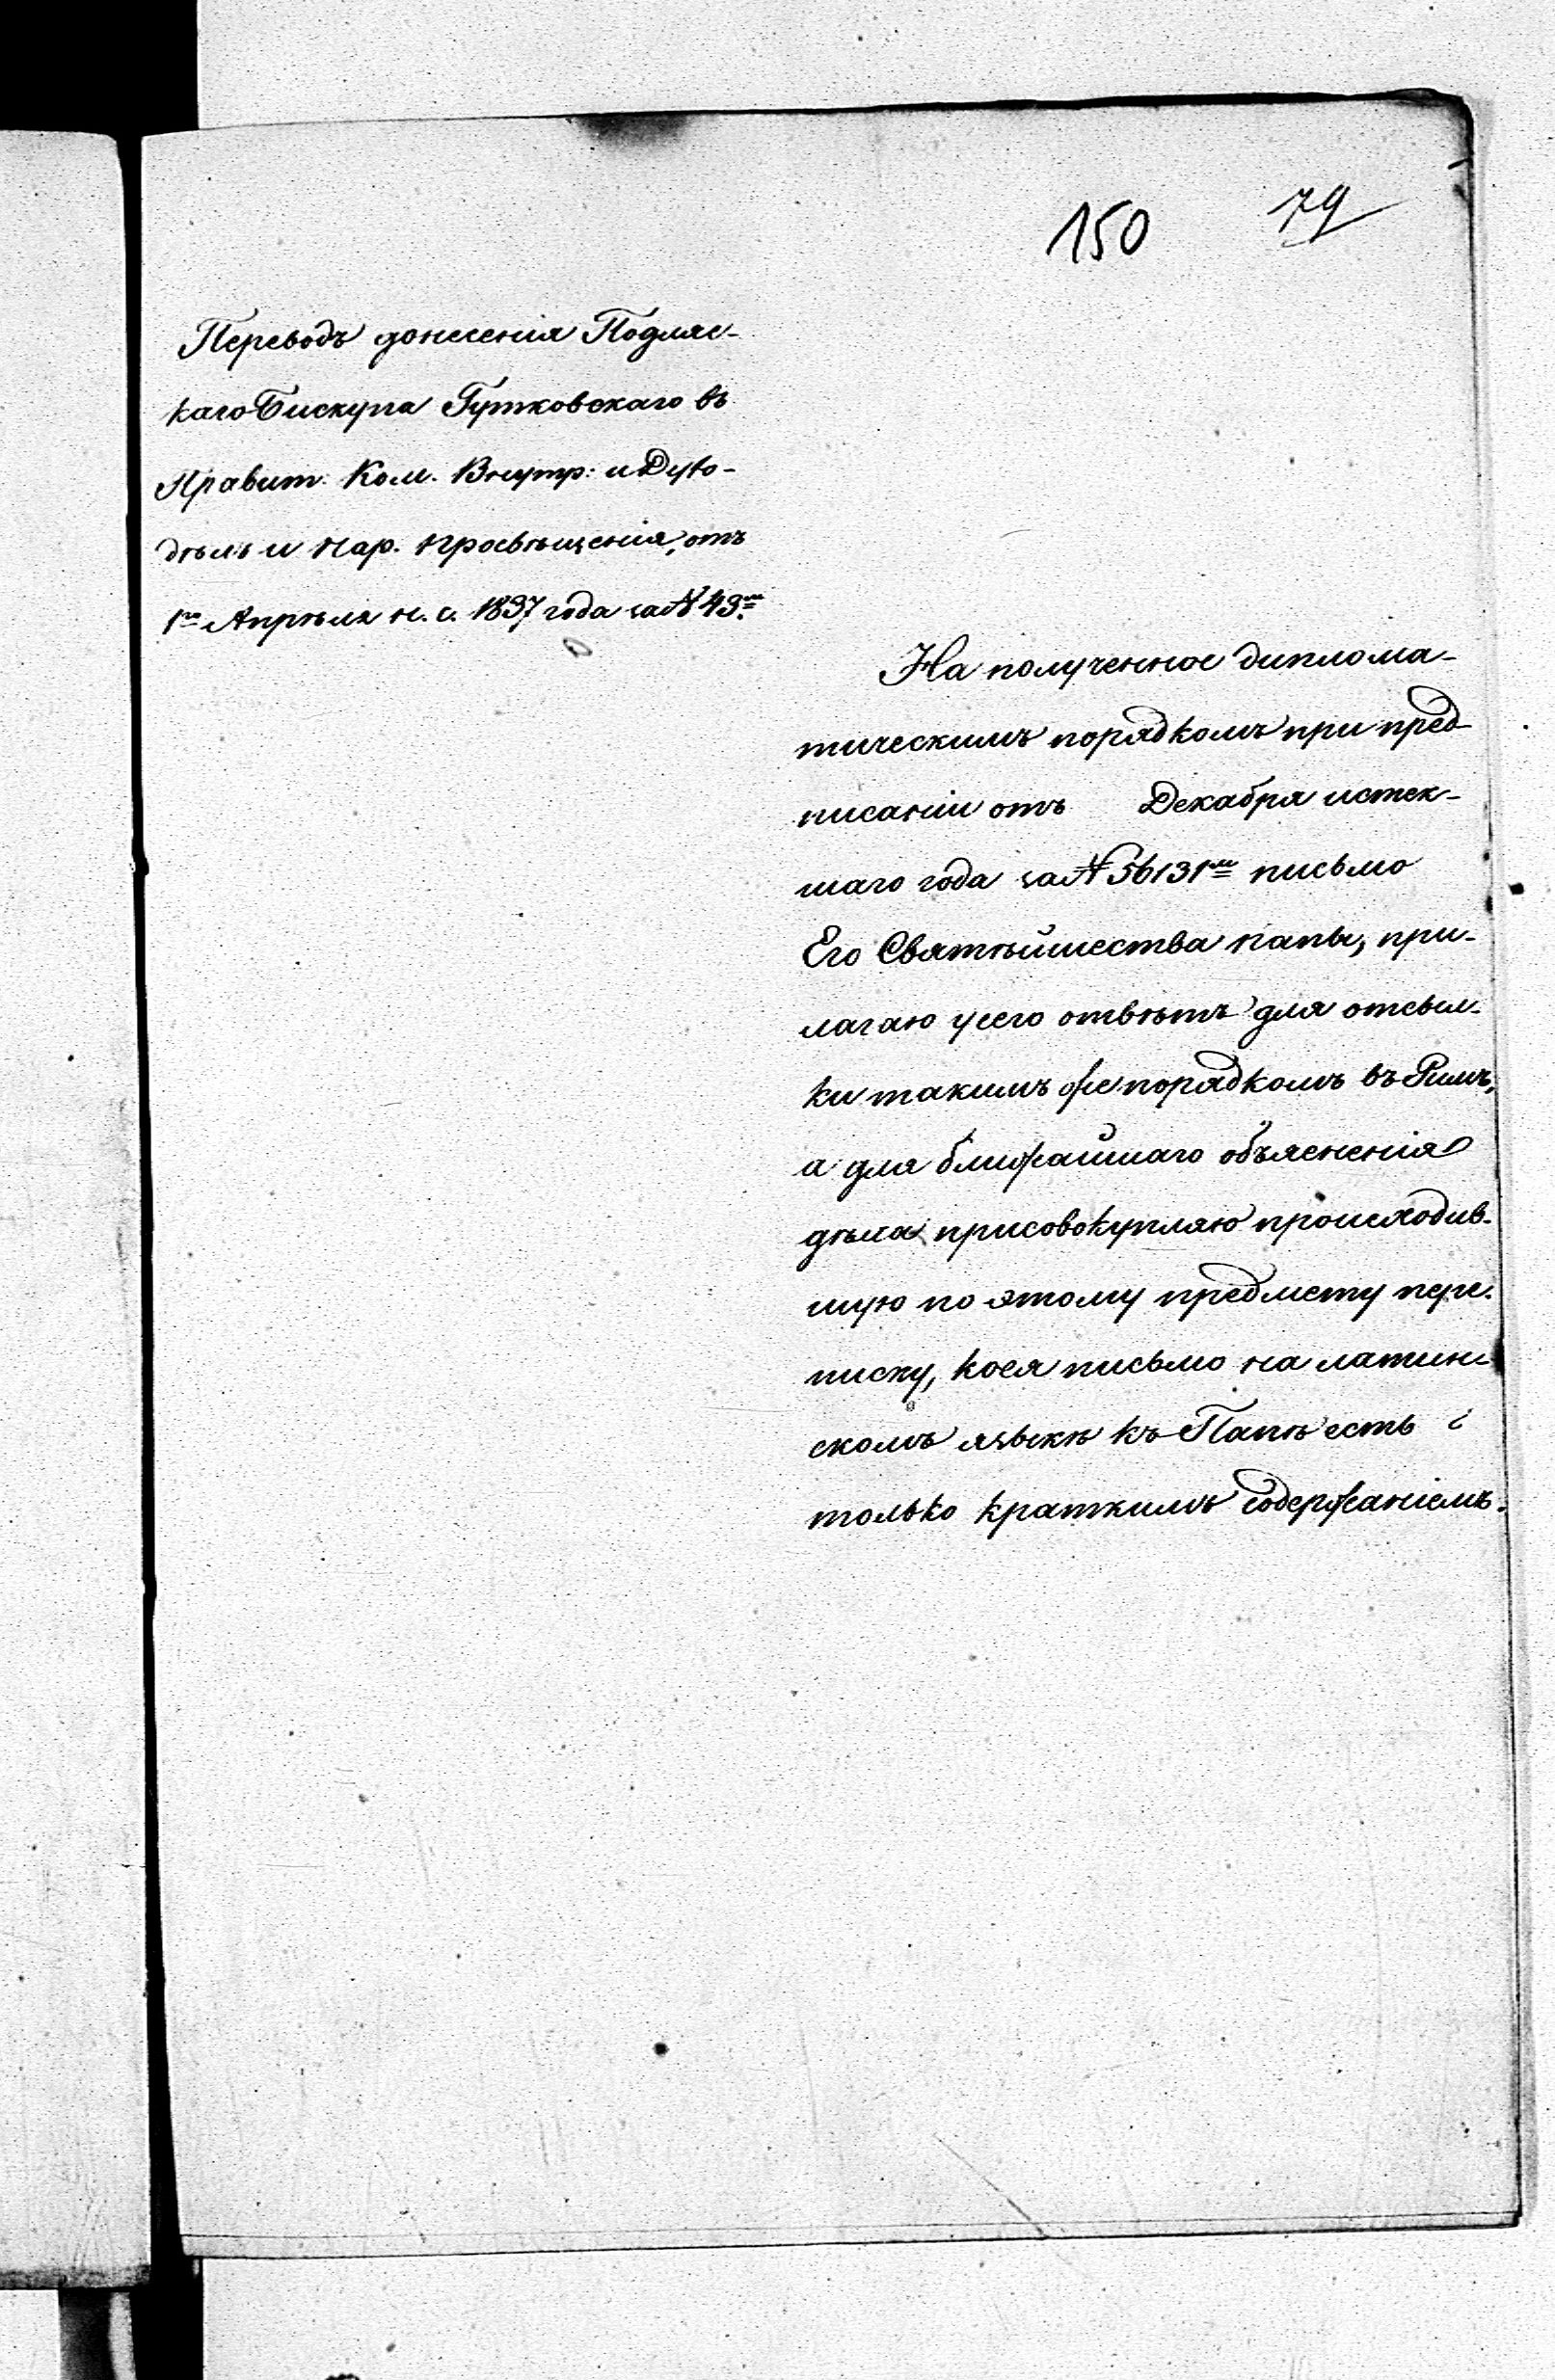 150 79
Переводъ донесенія Подляс-
каго Бискупа Гутковскаго въ
Правит. Ком. Внутр: и Духо-
дѣлъ и Нар. Просвѣщенія, отъ
1го Апрѣля н. с. 1837 года за № 49.м
На полученное диплома-
тическимъ порядкомъ при пред-
писаніи отъ Декабря истек-
шаго года за № 56131м письмо
Его Святѣйшества папы, при-
лагаю у сего отвѣтъ для отсыл-
ки такимъ же порядкомъ въ Римъ,
а для ближайшаго объясненія
дѣла присовокупляю происходив-
шую по этому предмету пере-
писку, коея письмо на латин-
скомъ языкѣ къ Папѣ есть
только краткимъ содержаніемъ.